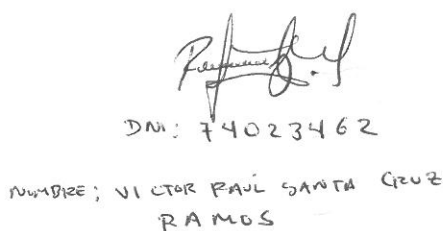 DNI: 74023462
NOMBRE; VICTOR RAÚL SANTA CRUZ
RAMOS